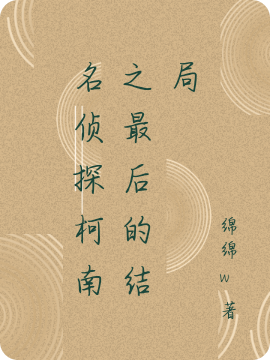 名侦探柯南
之最后的结
局
绵绵w著